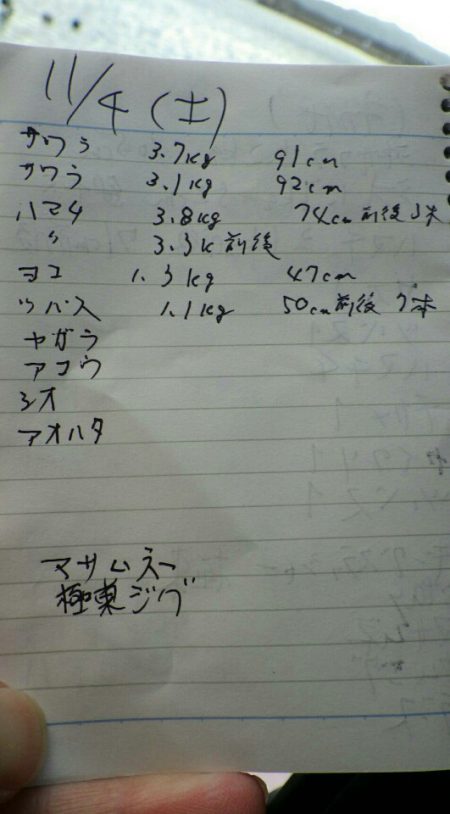 11/4 (土)
サワラ 3.7kg 91cm
サワラ 3.1kg 92cm
ハマチ 3.8kg 74cm前後 3本
〃 3.3k前後
ヨコ 1.3kg 47cm
ツバス 1.1kg 50cm前後 7本
ヤガラ
アコウ
シオ
アオハタ
マサムネー
極東ジグ